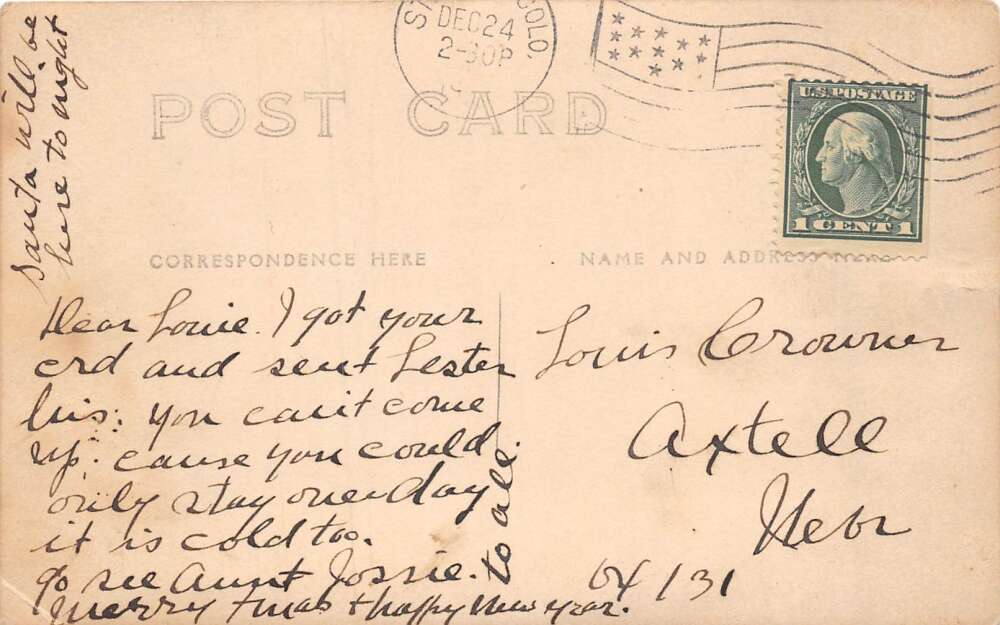 Santa will be
here to night
DEC 24
2-30P
COLO.
POST CARD
U.S. POSTAGE
1 CENT 1
CORRESPONDENCE HERE
NAME AND ADDRESS
Dear Louie. I got your
crd and sent Lester
his: you can't come
up. cause you could
only stay one day
it is cold too.
go see Aunt Jossie.
Merry Xmas & Happy New Year.
to all.
Louis Crowner
Axtell
Nebr
04/131